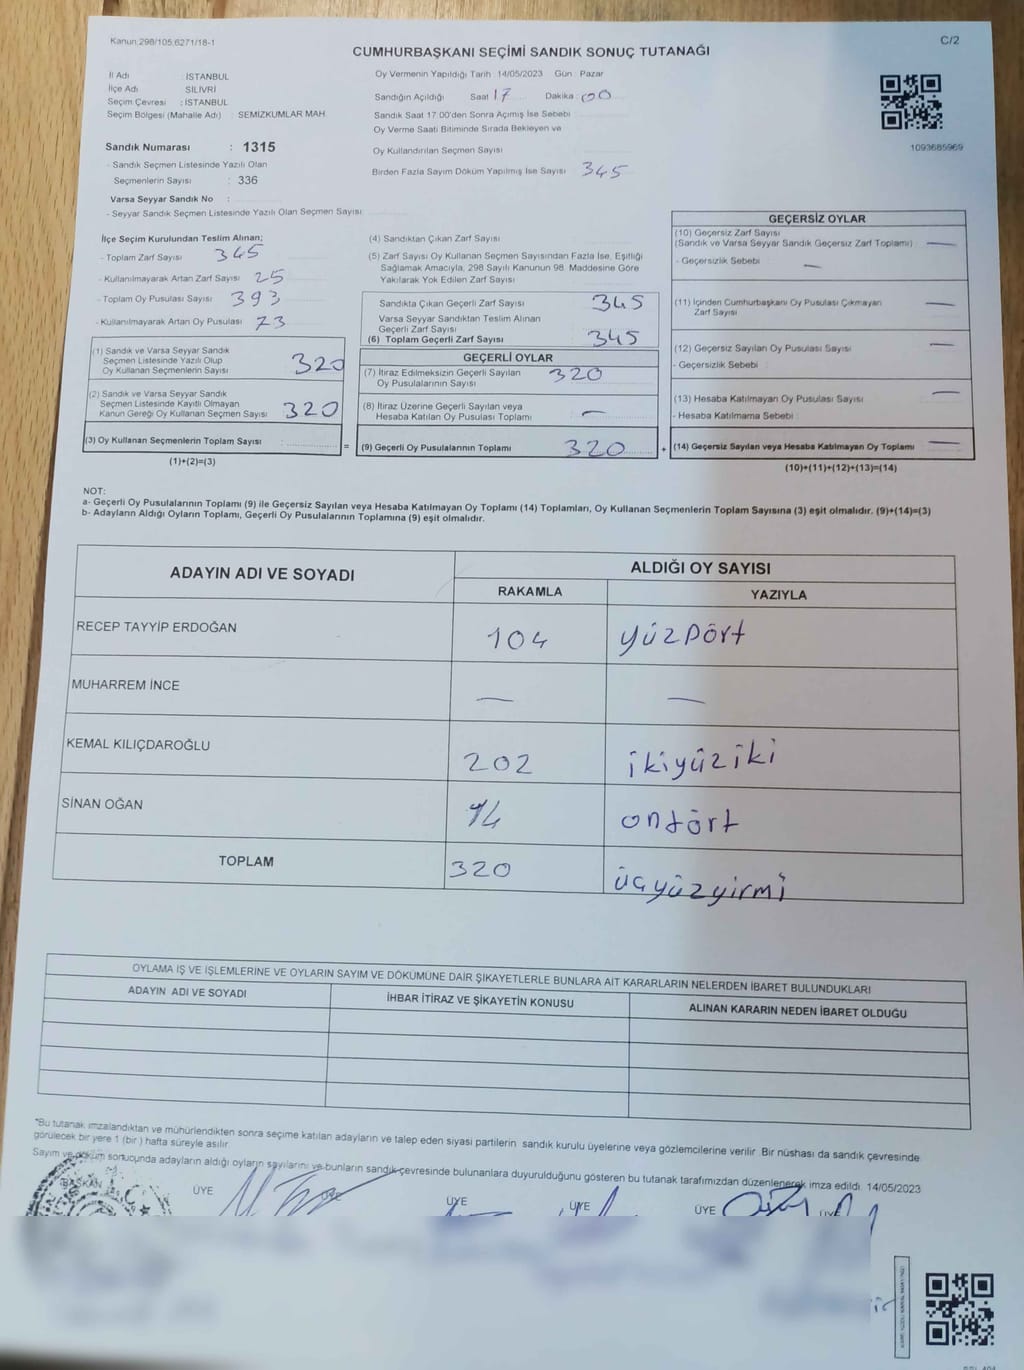 Kanun:298/105,6271/18-1
C/2
CUMHURBAŞKANI SEÇİMİ SANDIK SONUÇ TUTANAĞI
İl Adı : İSTANBUL
İlçe Adı SİLİVRİ
Seçim Çevresi : İSTANBUL
Seçim Bölgesi (Mahalle Adı) : SEMİZKUMLAR MAH
Oy Vermenin Yapıldığı Tarih :14/05/2023 Gün : Pazar
Sandığın Açıldığı Saat 17 Dakika : 00
Sandık Saat 17:00'den Sonra Açımış İse Sebebi
Oy Verme Saati Bitiminde Sırada Bekleyen ve
Oy Kullandırılan Seçmen Sayısı
Birden Fazla Sayım Döküm Yapılmış İse Sayısı 345
1093685969
Sandık Numarası : 1315
- Sandık Seçmen Listesinde Yazılı Olan
Seçmenlerin Sayısı : 336
Varsa Seyyar Sandık No :
- Seyyar Sandık Seçmen Listesinde Yazılı Olan Seçmen Sayısı
İlçe Seçim Kurulundan Teslim Alınan;
- Toplam Zarf Sayısı 345
- Kullanılmayarak Artan Zarf Sayısı 25
- Toplam Oy Pusulası Sayısı 393
- Kullanılmayarak Artan Oy Pusulası 73
(1) Sandık ve Varsa Seyyar Sandık
Seçmen Listesinde Yazılı Olup
Oy Kullanan Seçmenlerin Sayısı 320
(2) Sandık ve Varsa Seyyar Sandık
Seçmen Listesinde Kayıtlı Olmayan
Kanun Gereği Oy Kullanan Seçmen Sayısı 320
(3) Oy Kullanan Seçmenlerin Toplam Sayısı =
(1)+(2)=(3)
(4) Sandıktan Çıkan Zarf Sayısı
(5) Zarf Sayısı Oy Kullanan Seçmen Sayısından Fazla İse, Eşitliği
Sağlamak Amacıyla, 298 Sayılı Kanunun 98. Maddesine Göre
Yakılarak Yok Edilen Zarf Sayısı
Sandıkta Çıkan Geçerli Zarf Sayısı 345
Varsa Seyyar Sandıktan Teslim Alınan
Geçerli Zarf Sayısı
(6) Toplam Geçerli Zarf Sayısı 345
GEÇERLİ OYLAR
(7) İtiraz Edilmeksizin Geçerli Sayılan 320
Oy Pusulalarının Sayısı
(8) İtiraz Üzerine Geçerli Sayılan veya —
Hesaba Katılan Oy Pusulası Toplamı
(9) Geçerli Oy Pusulalarının Toplamı 320 +
GEÇERSİZ OYLAR
(10) Geçersiz Zarf Sayısı
(Sandık ve Varsa Seyyar Sandık Geçersiz Zarf Toplamı) —
- Geçersizlik Sebebi —
(11) İçinden Cumhurbaşkanı Oy Pusulası Çıkmayan —
Zarf Sayısı
(12) Geçersiz Sayılan Oy Pusulası Sayısı —
- Geçersizlik Sebebi
(13) Hesaba Katılmayan Oy Pusulası Sayısı —
- Hesaba Katılmama Sebebi
(14) Geçersiz Sayılan veya Hesaba Katılmayan Oy Toplamı —
(10)+(11)+(12)+(13)=(14)
NOT:
a- Geçerli Oy Pusulalarının Toplamı (9) ile Geçersiz Sayılan veya Hesaba Katılmayan Oy Toplamı (14) Toplamları, Oy Kullanan Seçmenlerin Toplam Sayısına (3) eşit olmalıdır. (9)+(14)=(3)
b- Adayların Aldığı Oyların Toplamı, Geçerli Oy Pusulalarının Toplamına (9) eşit olmalıdır.
ADAYIN ADI VE SOYADI
ALDIĞI OY SAYISI
RAKAMLA YAZIYLA
RECEP TAYYİP ERDOĞAN 104 yüzDört
MUHARREM İNCE — —
KEMAL KILIÇDAROĞLU 202 ikiyüziki
SİNAN OĞAN 14 ondört
TOPLAM 320 üçyüzyirmi
OYLAMA İŞ VE İŞLEMLERİNE VE OYLARIN SAYIM VE DÖKÜMÜNE DAİR ŞİKAYETLERLE BUNLARA AİT KARARLARIN NELERDEN İBARET BULUNDUKLARI
ADAYIN ADI VE SOYADI İHBAR İTİRAZ VE ŞİKAYETİN KONUSU ALINAN KARARIN NEDEN İBARET OLDUĞU
*Bu tutanak imzalandıktan ve mühürlendikten sonra seçime katılan adayların ve talep eden siyasi partilerin sandık kurulu üyelerine veya gözlemcilerine verilir. Bir nüshası da sandık çevresinde
görülecek bir yere 1 (bir) hafta süreyle asılır.
Sayım ve döküm sonucunda adayların aldığı oyların sayılarını ve bunların sandık çevresinde bulunanlara duyurulduğunu gösteren bu tutanak tarafımızdan düzenlenerek imza edildi. 14/05/2023
BAŞKAN ÜYE ÜYE ÜYE ÜYE ÜYE ÜYE